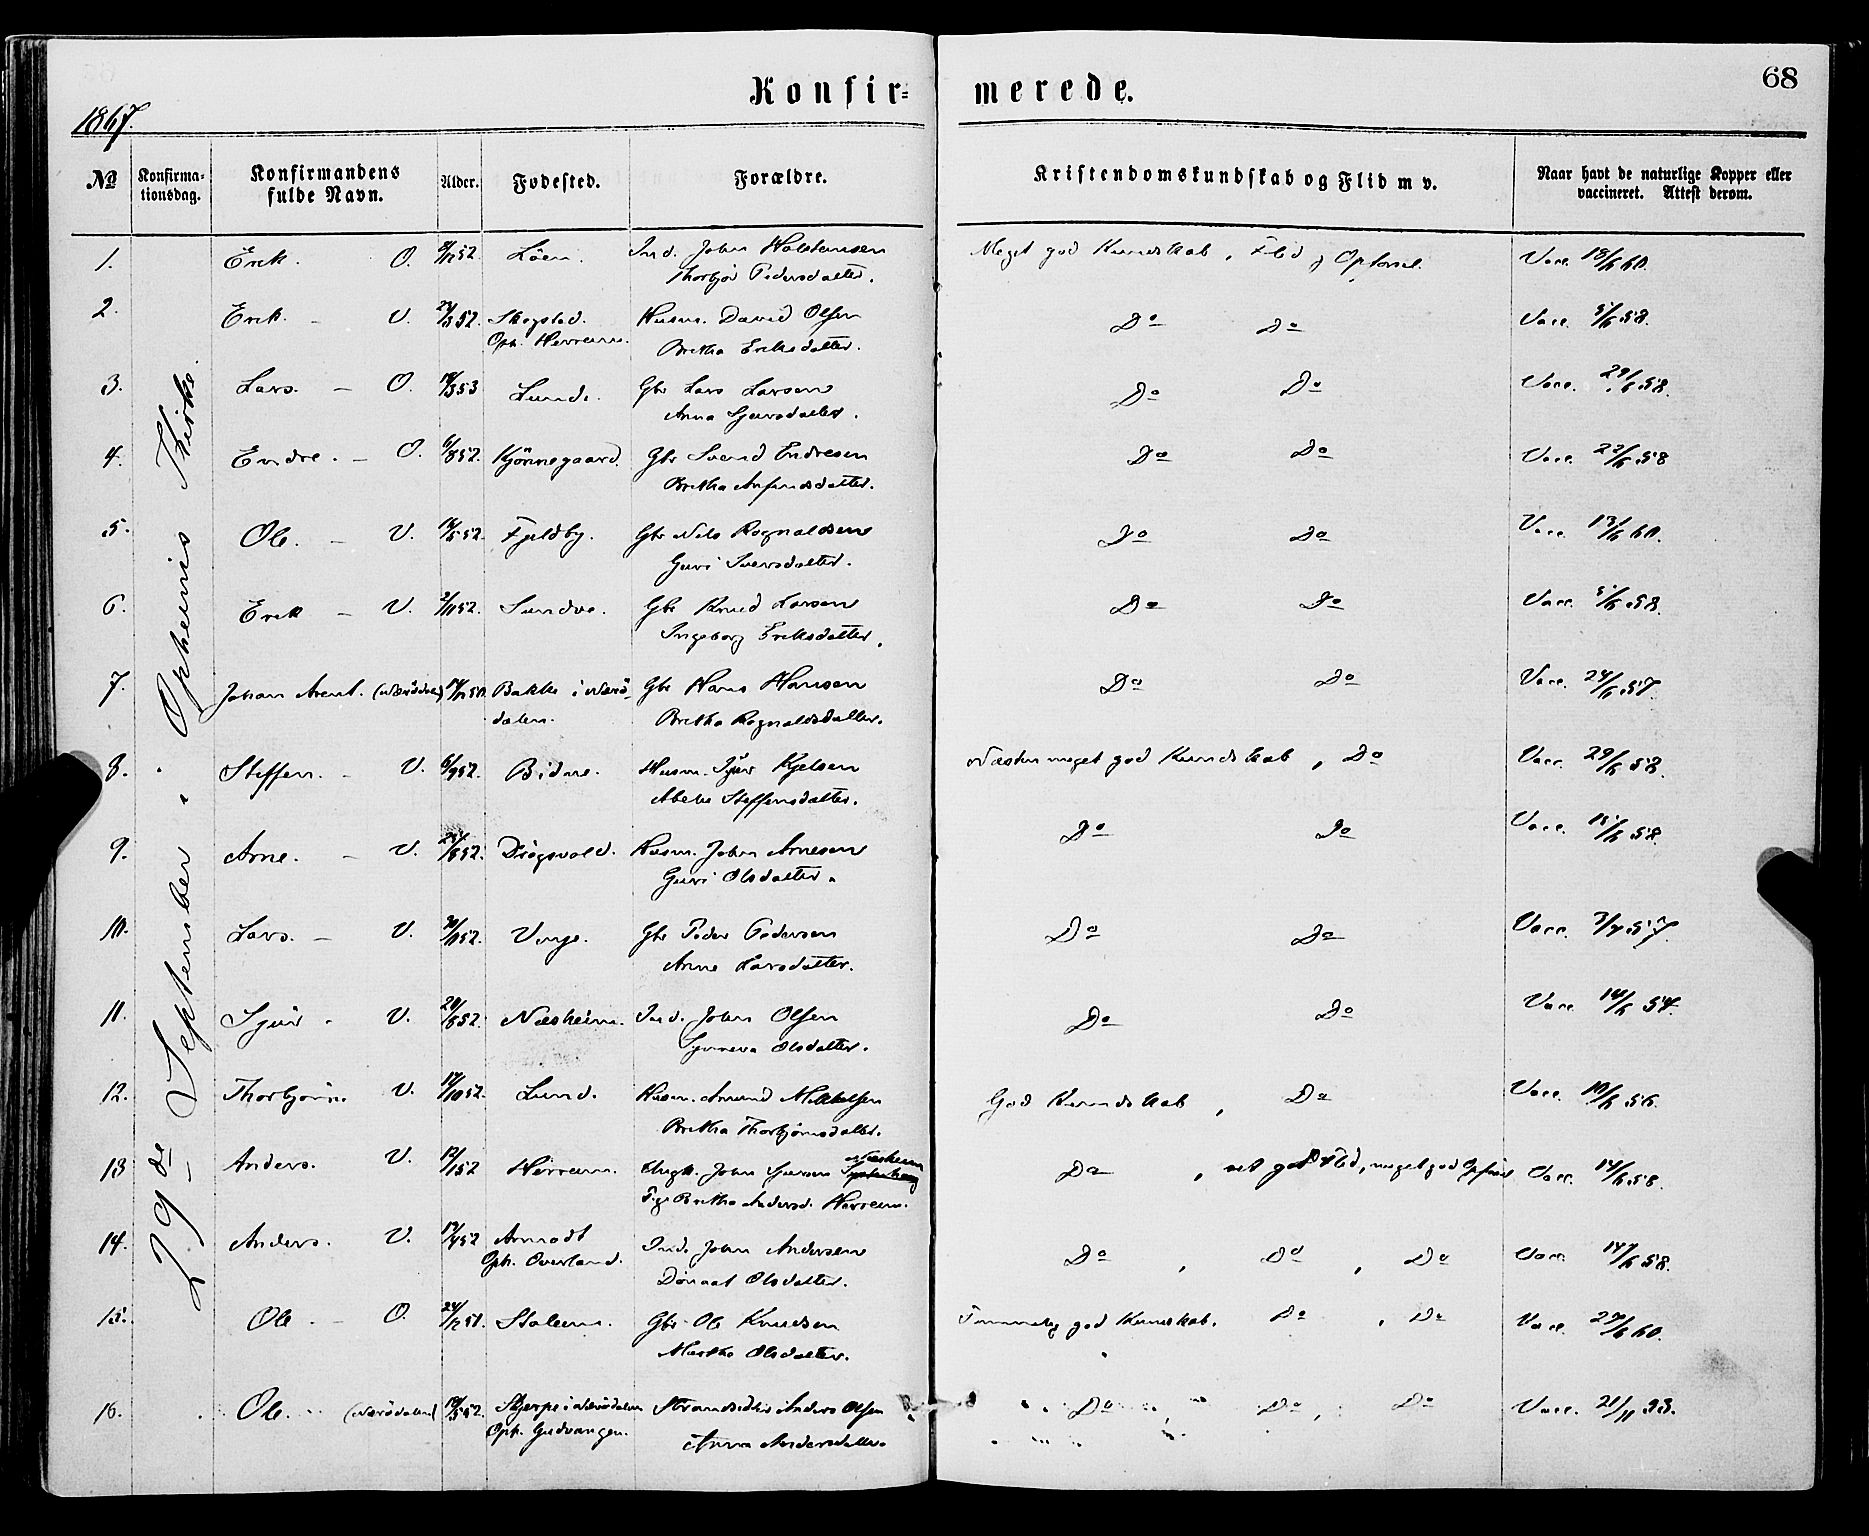 Konfir- merede.
68
1867.
№ Konfirma-tionsdag. Konfirmandens fulde Navn. Alder. Fødested. Forældre. Kristendomskundskab og Flid m v. Naar havt de naturlige Kopper eller vaccineret. Attest derom.
29de September i Opheims Kirke.
1. Erik. O. Löen. Ind. John Halstensen Meget god Kundskab, Flid og Opførsel. Vacc. 18/6 60.
Thorbjør Pedersdatter.
2. Erik. – V. 27/3 52. Skogstad. Husm. David Olsen Do Do Vacc. 5/6 58.
Oph. Herreim. Bretha Eriksdatter.
3. Lars. – O. 18/3 53 Lunde. Gbr Lars Larsen Do Do Vacc. 29/6 58.
Anna Sjursdatter.
4. Endre. – O. 6/8 52. Kjönnegaard. Gbr Svend Endresen Do Do Vacc. 22/6 58
Bretha Anfindsdatter.
5. Ole. – V. 16/5 52. Fjeldby. Gbr Nels Rognaldsen Do Do Vacc. 13/6 60.
Guri Iversdatter.
6. Erik – V. 2/11 52. Sundve. Gbr Knud Larsen Do Do Vacc. 5/6 58.
Ingeborg Eriksdatter.
7. Johan Arent. (Nærödalen) Bakke i Nærö- Gbr Hans Hansen Do Do Vacc. 24/6 57.
dalen. Bretha Rognaldsdatter.
8. Steffen. – V. 6/9 52. Bidne. Husm. Sjur Kjelsen Næsten meget god Kundskab, Do Vacc. 29/6 58.
Abelu Steffensdatter.
9. Arne. – V. Dragsvold. Husm. John Arnesen Do Do Vacc. 15/6 58.
Guri Olsdatter.
10. Lars. – V. Vinje. Gbr Peder Pedersen Do Do Vacc. 3/7 57.
Anna Larsdatter.
11. Sjur. V. 20/5 52. Næsheim. Ind. John Olsen Do Do Vacc. 14/6 54.
Synneva Olsdatter.
12. Thorbjørn. V. 17/10 52. Lund. Husm. Amund Mikkelsen God Kundskab, Do Vacc. 10/6 56.
Bretha Thorbjørnsdatter.
13 Anders. V. 12/1 52 Herreim. Ungk. John Sjursen Næsheim Do, ret god Flid, meget god Opførsel Vacc. 14/6 58.
Pige Bretha Andersd. Herreim.
14. Anders. V. 19/4 52 Armodt Ind. John Andersen Do, Do, Do Vacc. 14/6 58.
Oph. Overland. Dönaat Olsdatter.
15. Ole – O. 24/12 51. Staleim. Gbr Ole Knudsen Temmelig god Kundskab. Do, Do Vacc. 29/6 60.
Martha Olsdatter.
16. Ole. (Nærödalen) Skjerpe i Nærödalen Strandsidder Anders Olsen Do, Do, Do Vacc. 21/11 53.
Oph. Gudvangen. Anna Andersdatter.